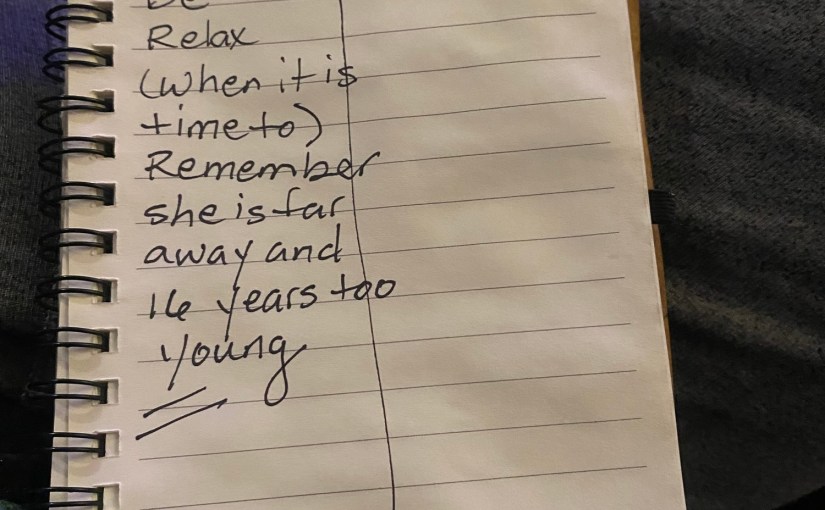 Relax
(when it is
time to)
Remember
she is far
away and
16 years too
young